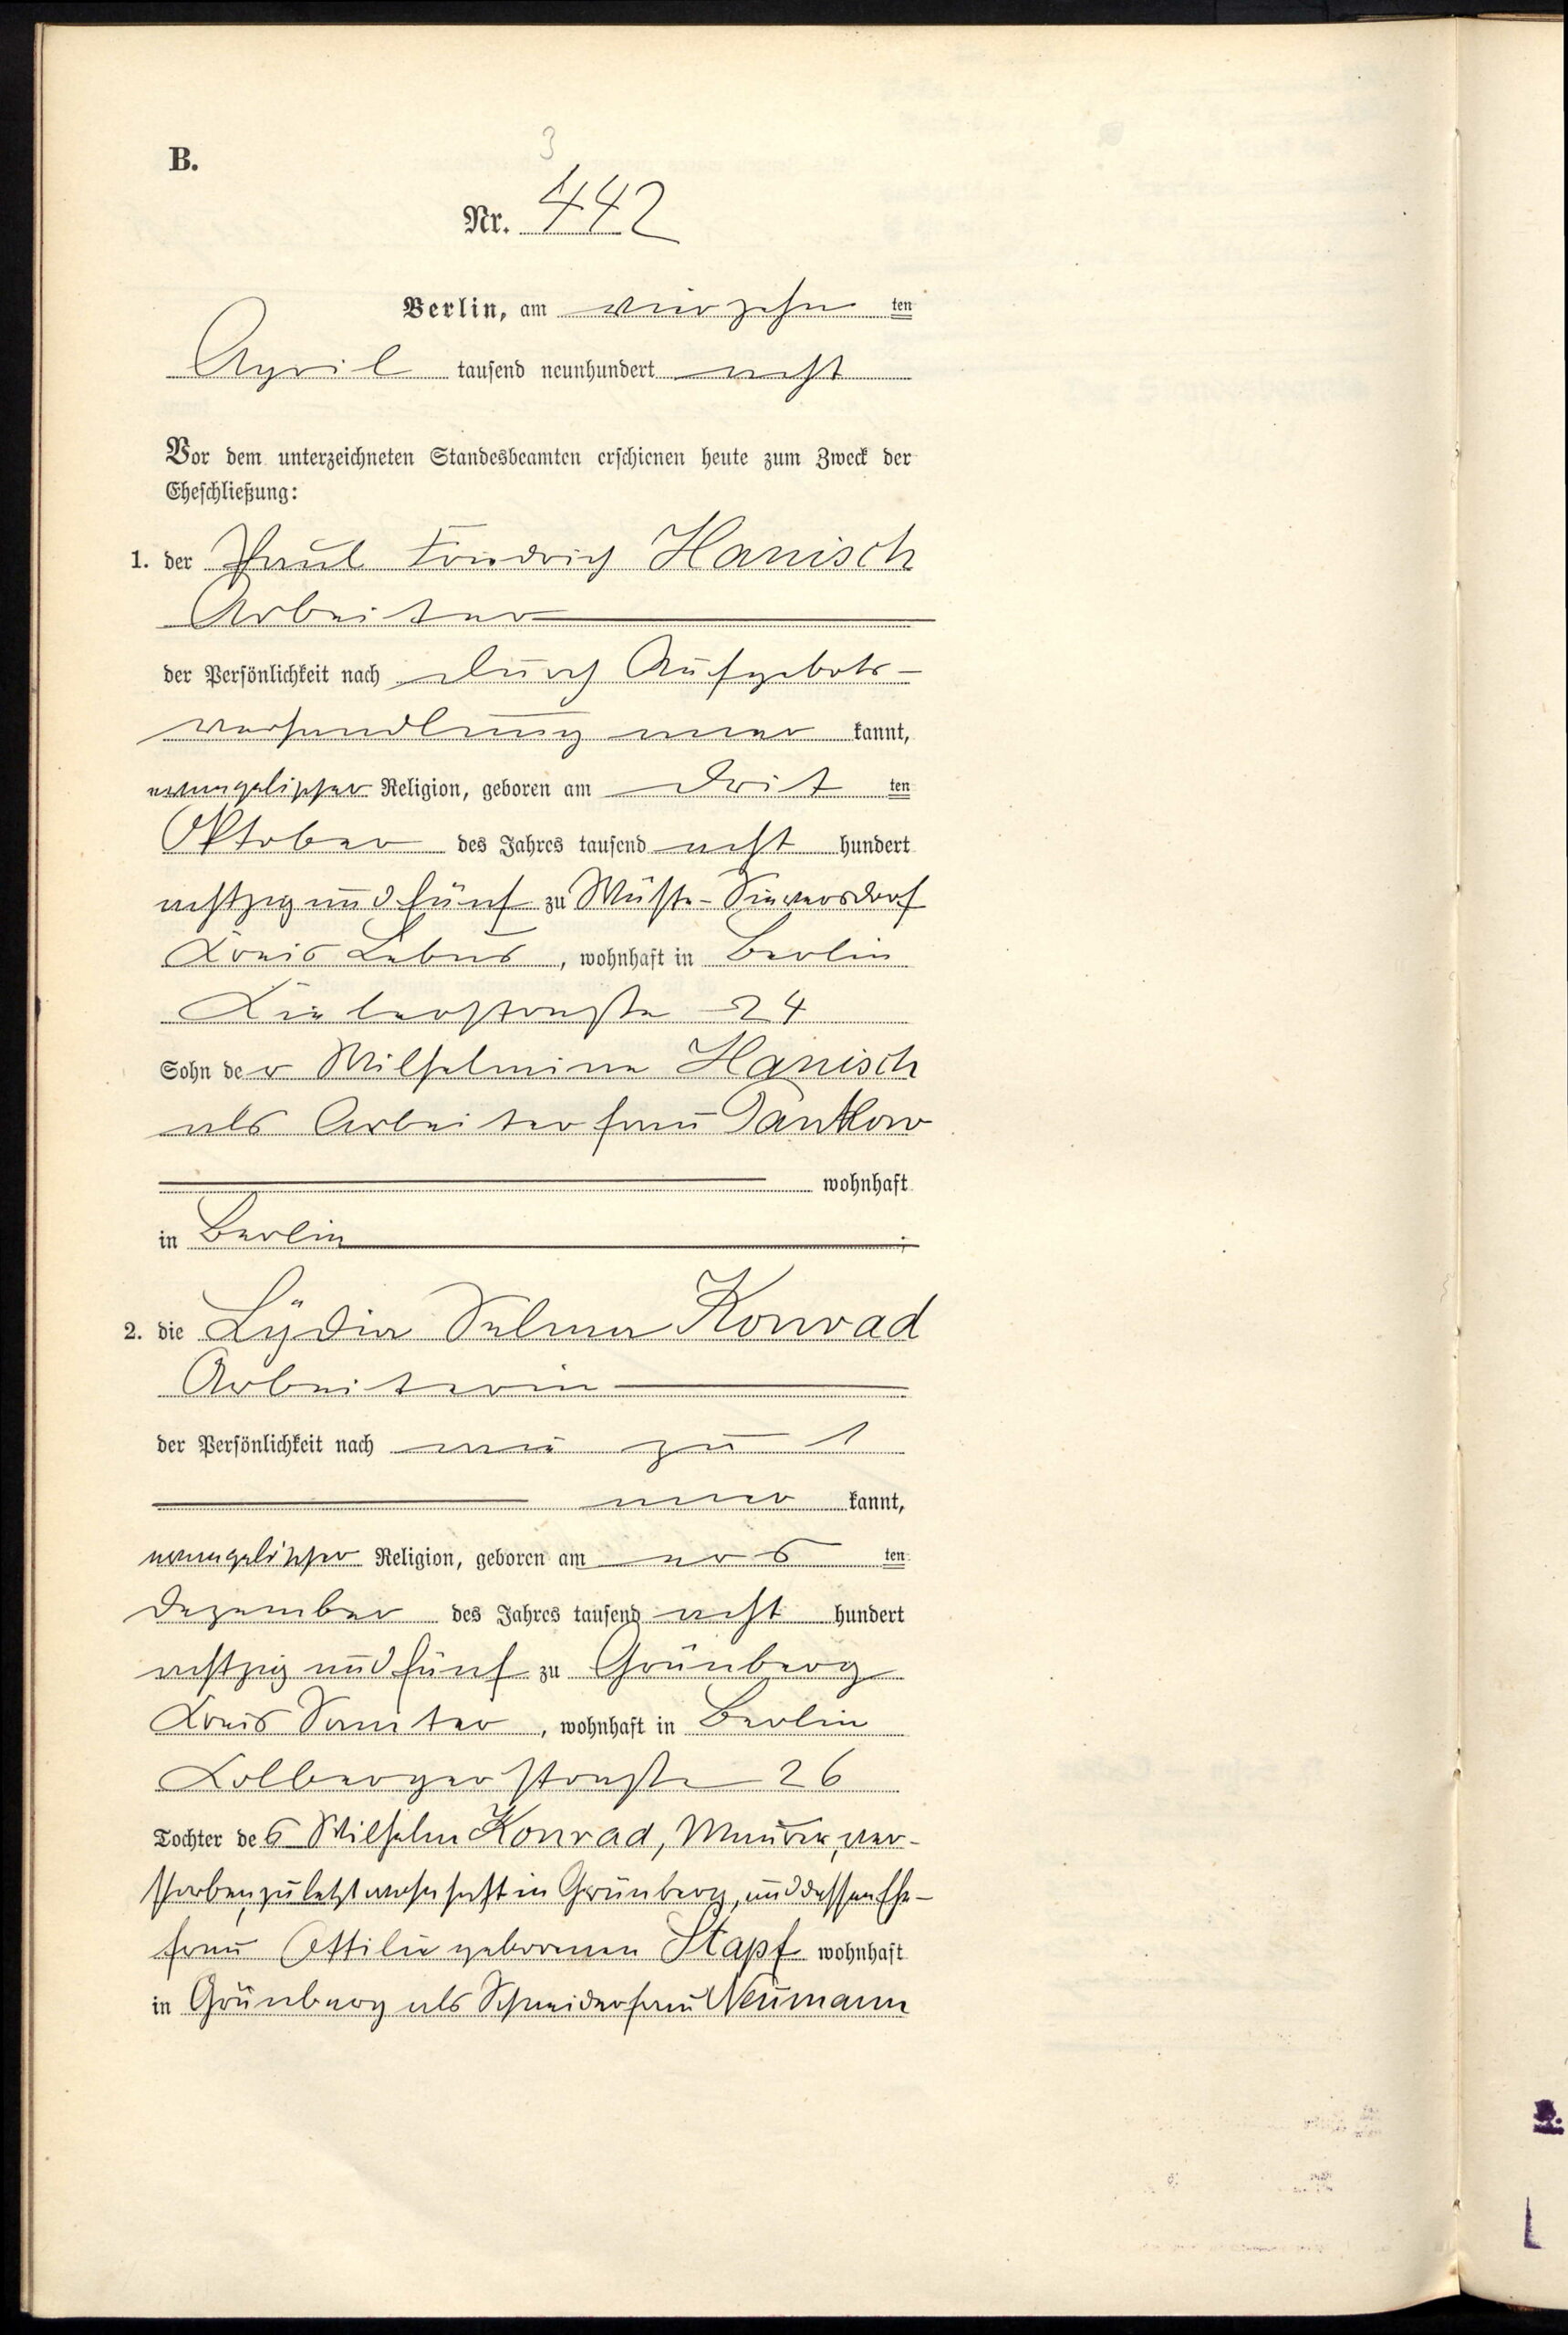 3
B.
Nr. 442
Berlin, am vierzehn ten
April tausend neunhundert acht
Vor dem unterzeichneten Standesbeamten erschienen heute zum Zweck der
Eheschließung:
1. der Paul Friedrich Hanisch
Arbeiter
der Persönlichkeit nach durch Aufgebots-
verhandlung aner kannt,
evangelischer Religion, geboren am drit ten
Oktober des Jahres tausend acht hundert
achtzig und fünf zu Wüste-Sieversdorf
Kreis Lebus, wohnhaft in Berlin
24
Sohn der Wilhelmine Hanisch
als Arbeiterfrau Pankow
wohnhaft
in Berlin ;
2. die Lydia Selma Konrad
Arbeiterin
der Persönlichkeit nach wie zu 1
aner kannt,
evangelischer Religion, geboren am ers ten
Dezember des Jahres tausend acht hundert
achtzig und fünf zu Grünberg
Kreis Samter, wohnhaft in Berlin
Kolbergerstraße 26
Tochter des Wilhelm Konrad, Maurer, ver-
storben, zuletzt wohnhaft in Grünberg, und dessen Ehe-
frau Ottilie geborenen Stapf wohnhaft
in Grünberg als Schneiderfrau Neumann